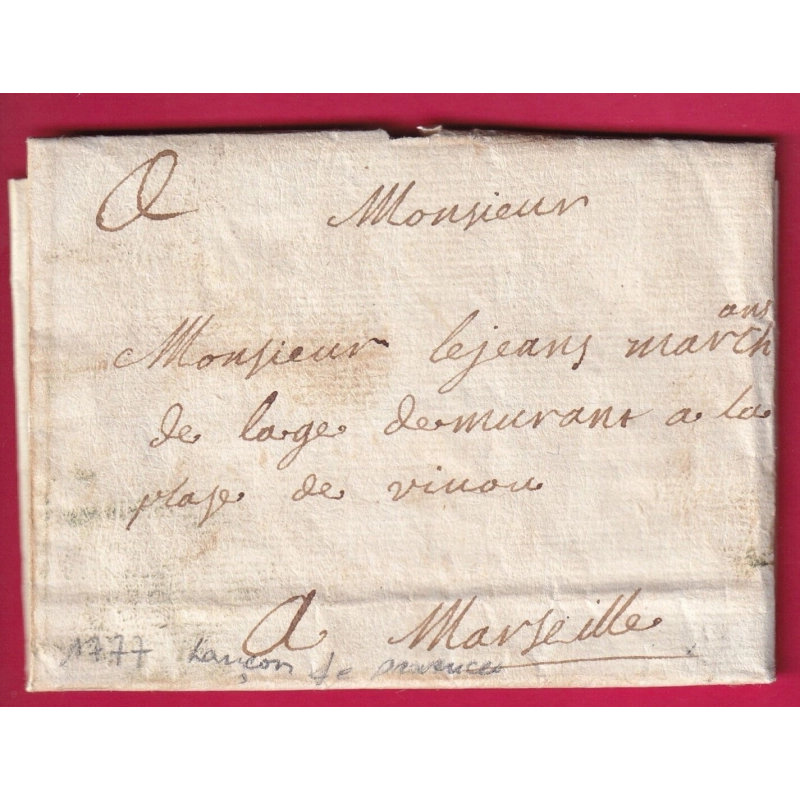 A Monsieur
Monsieur lejeans march ans
de lage demurant a la
plase de vivou
A Marseille
1777 Lançon de provence